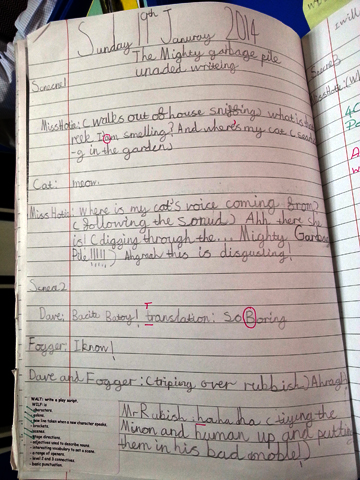 Sunday 19th Januray 2014
The Mighty garbage pile
unaded writeing
Screene1
Miss Hotie: (walks out of house sniffing) what is the
reek I am smelling? And where's my cat (
-g in the garden)
Cat: meow.
Miss Hotie: Where is my cat's voice coming from?
(following the sound) Ahh there she
is! (digging through the... Mighty Garbage
Pile!!!!!) Ahgreah this is disgusting!
Screne2
Dave: Bacite Batoy! translation: So Boring
Fogger: I know!
Dave and Fogger: (triping over rubbish) Ahragh
Mr Rubish hahaha (tiying the
Minon and human up and putting
them in his bad moble!)
WALT: write a play script.
WILF: is
characters
colons.
new line taken when a new character speaks.
brackets
scenes
stage directions
adjectives used to describe nouns
interesting vocabulary to set a scene.
a range of openers
level 2 and 3 connectives
basic punctuation.
I will